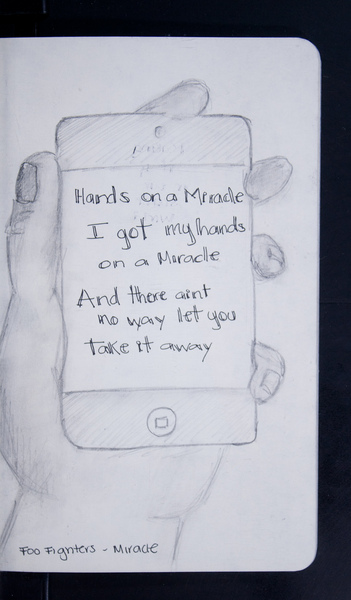 Hands on a Miracle
I got my hands
on a Miracle
And there aint
no way let you
take it away
Foo Fighters - Miracle